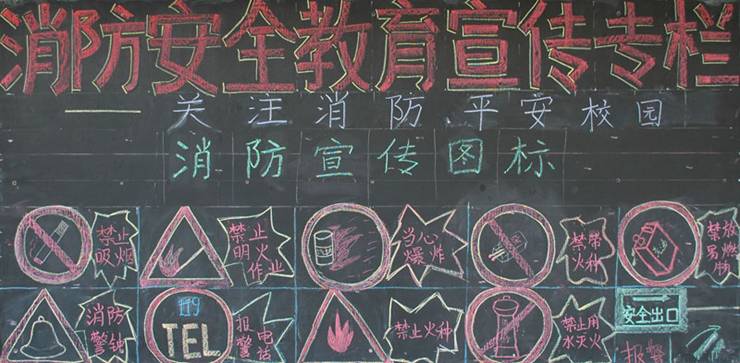 消防安全教育宣传专栏
——关注消防平安校园
消防宣传图标
禁止
吸烟
禁止
明火
作业
当心
爆炸
禁带
火种
禁放
易燃
物
消防
警钟
119
TEL
报警
电话
禁止火种
禁止用
水灭火
安全出口
报警